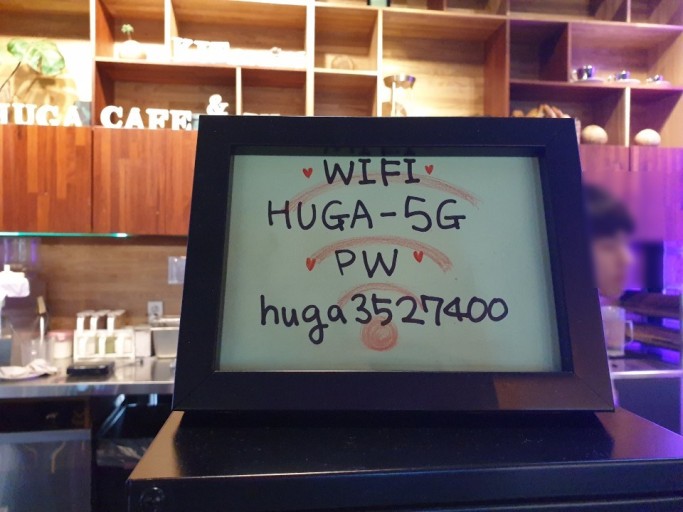 HUGA CAFE &
WIFI
HUGA-5G
PW
huga3527400